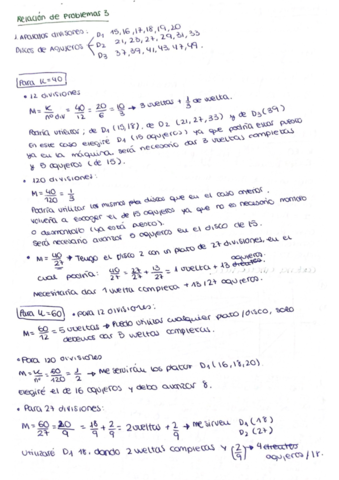 Relación de Problemas 3
1. Aparatos divisores: D1 15, 16, 17, 18, 19, 20
Discos de agujeros D2 21, 23, 27, 29, 31, 33
D3 37, 39, 41, 43, 47, 49.
Para K=40
• 12 divisiones
M = K/nº div = 40/12 = 20/6 = 10/3 → 3 vueltas + 1/3 de vuelta.
Podría utilizar, de D1 (15, 18), de D2 (21, 27, 33) y de D3 (39)
En este caso elegiré D1 (15 agujeros) ya que podría estar puesto
ya en la máquina. será necesario dar 3 vueltas completas
y 5 agujeros (de 15).
• 120 divisiones:
M = 40/120 = 1/3
Podría utilizar los mismos discos que en el caso anterior.
volvería a escoger el de 15 agujeros ya que no es necesario montarlo
o desmontarlo (ya está puesto).
Será necesario avanzar 5 agujeros en el disco de 15.
• M = 40/27 → Tengo el disco 2 con un plato de 27 divisiones, en el
cual podría: 40/27 = 27/27 + 13/27 = 1 vuelta + 13 agujeros
Necesitaría dar 1 vuelta completa + 13/27 agujeros.
Para K=60 • para 12 divisiones:
M = 60/12 = 5 vueltas → Puedo utilizar cualquier plato/disco, solo
debemos dar 5 vueltas completas.
• Para 120 divisiones
M = K/nº = 60/120 = 1/2 → Me servirán los platos D1 (16, 18, 20).
Elegiré el de 16 agujeros y debo avanzar 8.
• Para 27 divisiones:
M = 60/27 = 20/9 = 18/9 + 2/9 = 2 vueltas + 2/9 → me sirven D1 (18)
D2 (27)
Utilizaré D1 18, dando 2 vueltas completas y (2/9) → 4 agujeros/18.